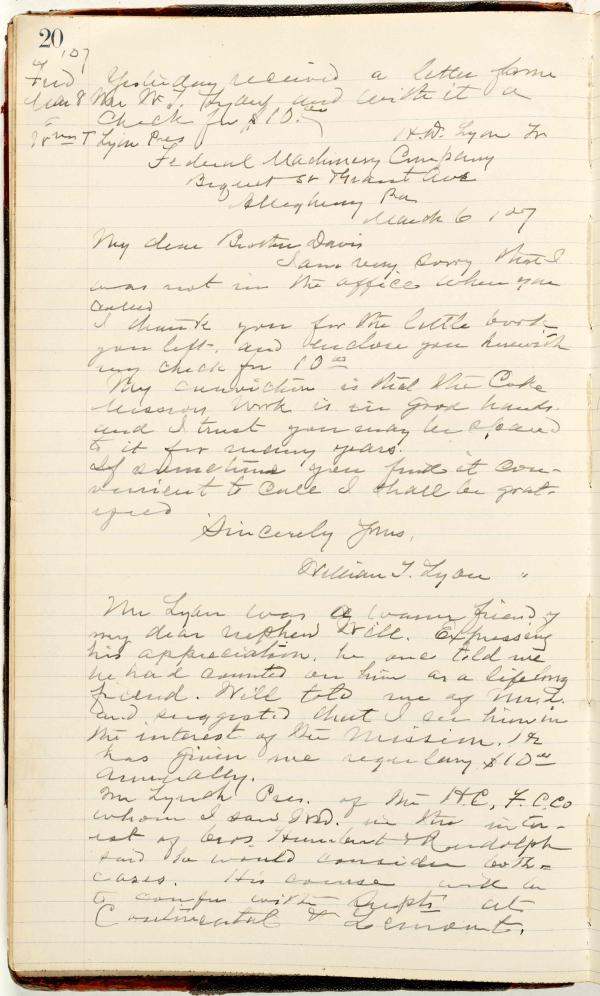 20
'07
Frid Yesterday received a letter from
Mar 8 Mr W. T. Lyon and with it a
check for $10.00
Wm T Lyon Pres H.D. Lyon Tr
Federal Machinery Company
St Ave
Allegheny Pa
March 6 '07
My dear Brother Davis
I am very sorry that I
was not in the office when you
called
I thank you for the little book
you left, and enclose you herewith
my check for 10 00
My conviction is that the Coke
Mission work is in good hands
and I trust you may be spared
to it for many years.
If sometime you find it con-
venient to call I shall be grat-
ified
Sincerely Yours,
William T. Lyon "
Mr Lyon was a warm friend of
my dear nephew Will. Expressing
his appreciation, he once told me
he had counted on him as a lifelong
friend. Will told me of Mr. L.
and suggested that I see him in
the interest of the Mission. He
has given me regularly $10 00
annually.
Mr Lynch Pres. of the H.C. F. C. Co
whom I saw Wed. in the inter-
est of bros. Humbert & Rudolph
said he would consider both
cases. His course will be
to confer with Supts at
Continental & Lemont.